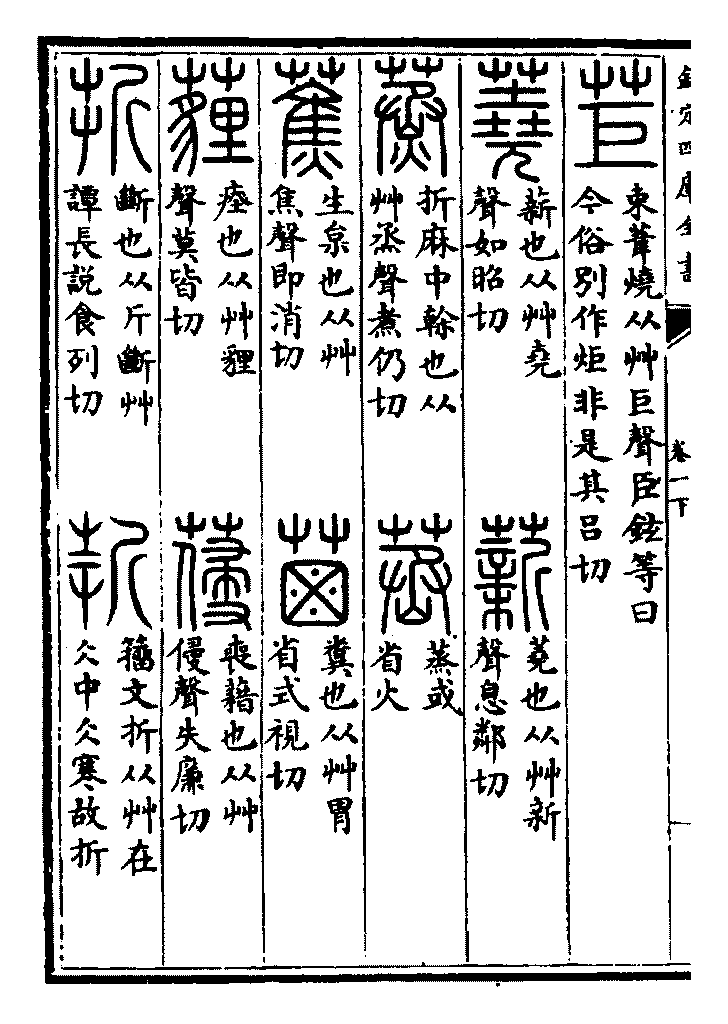 欽定四庫全書
卷一下
苣
束葦燒从艸巨聲臣鉉等曰
今俗別作炬非是其呂切
蕘
薪也从艸堯
聲如昭切
薪
蕘也从艸新
聲息鄰切
蒸
折麻中榦也从
艸烝聲煮仍切
蒸或
省火
蕉
生枲也从艸
焦聲即消切
𦳊
糞也从艸胃
省式視切
薶
瘞也从艸貍
聲莫皆切
葠
喪藉也从艸
㑴聲失廉切
折
斷也从斤斷艸
譚長說食列切
籀文折从艸在
仌中仌寒故折